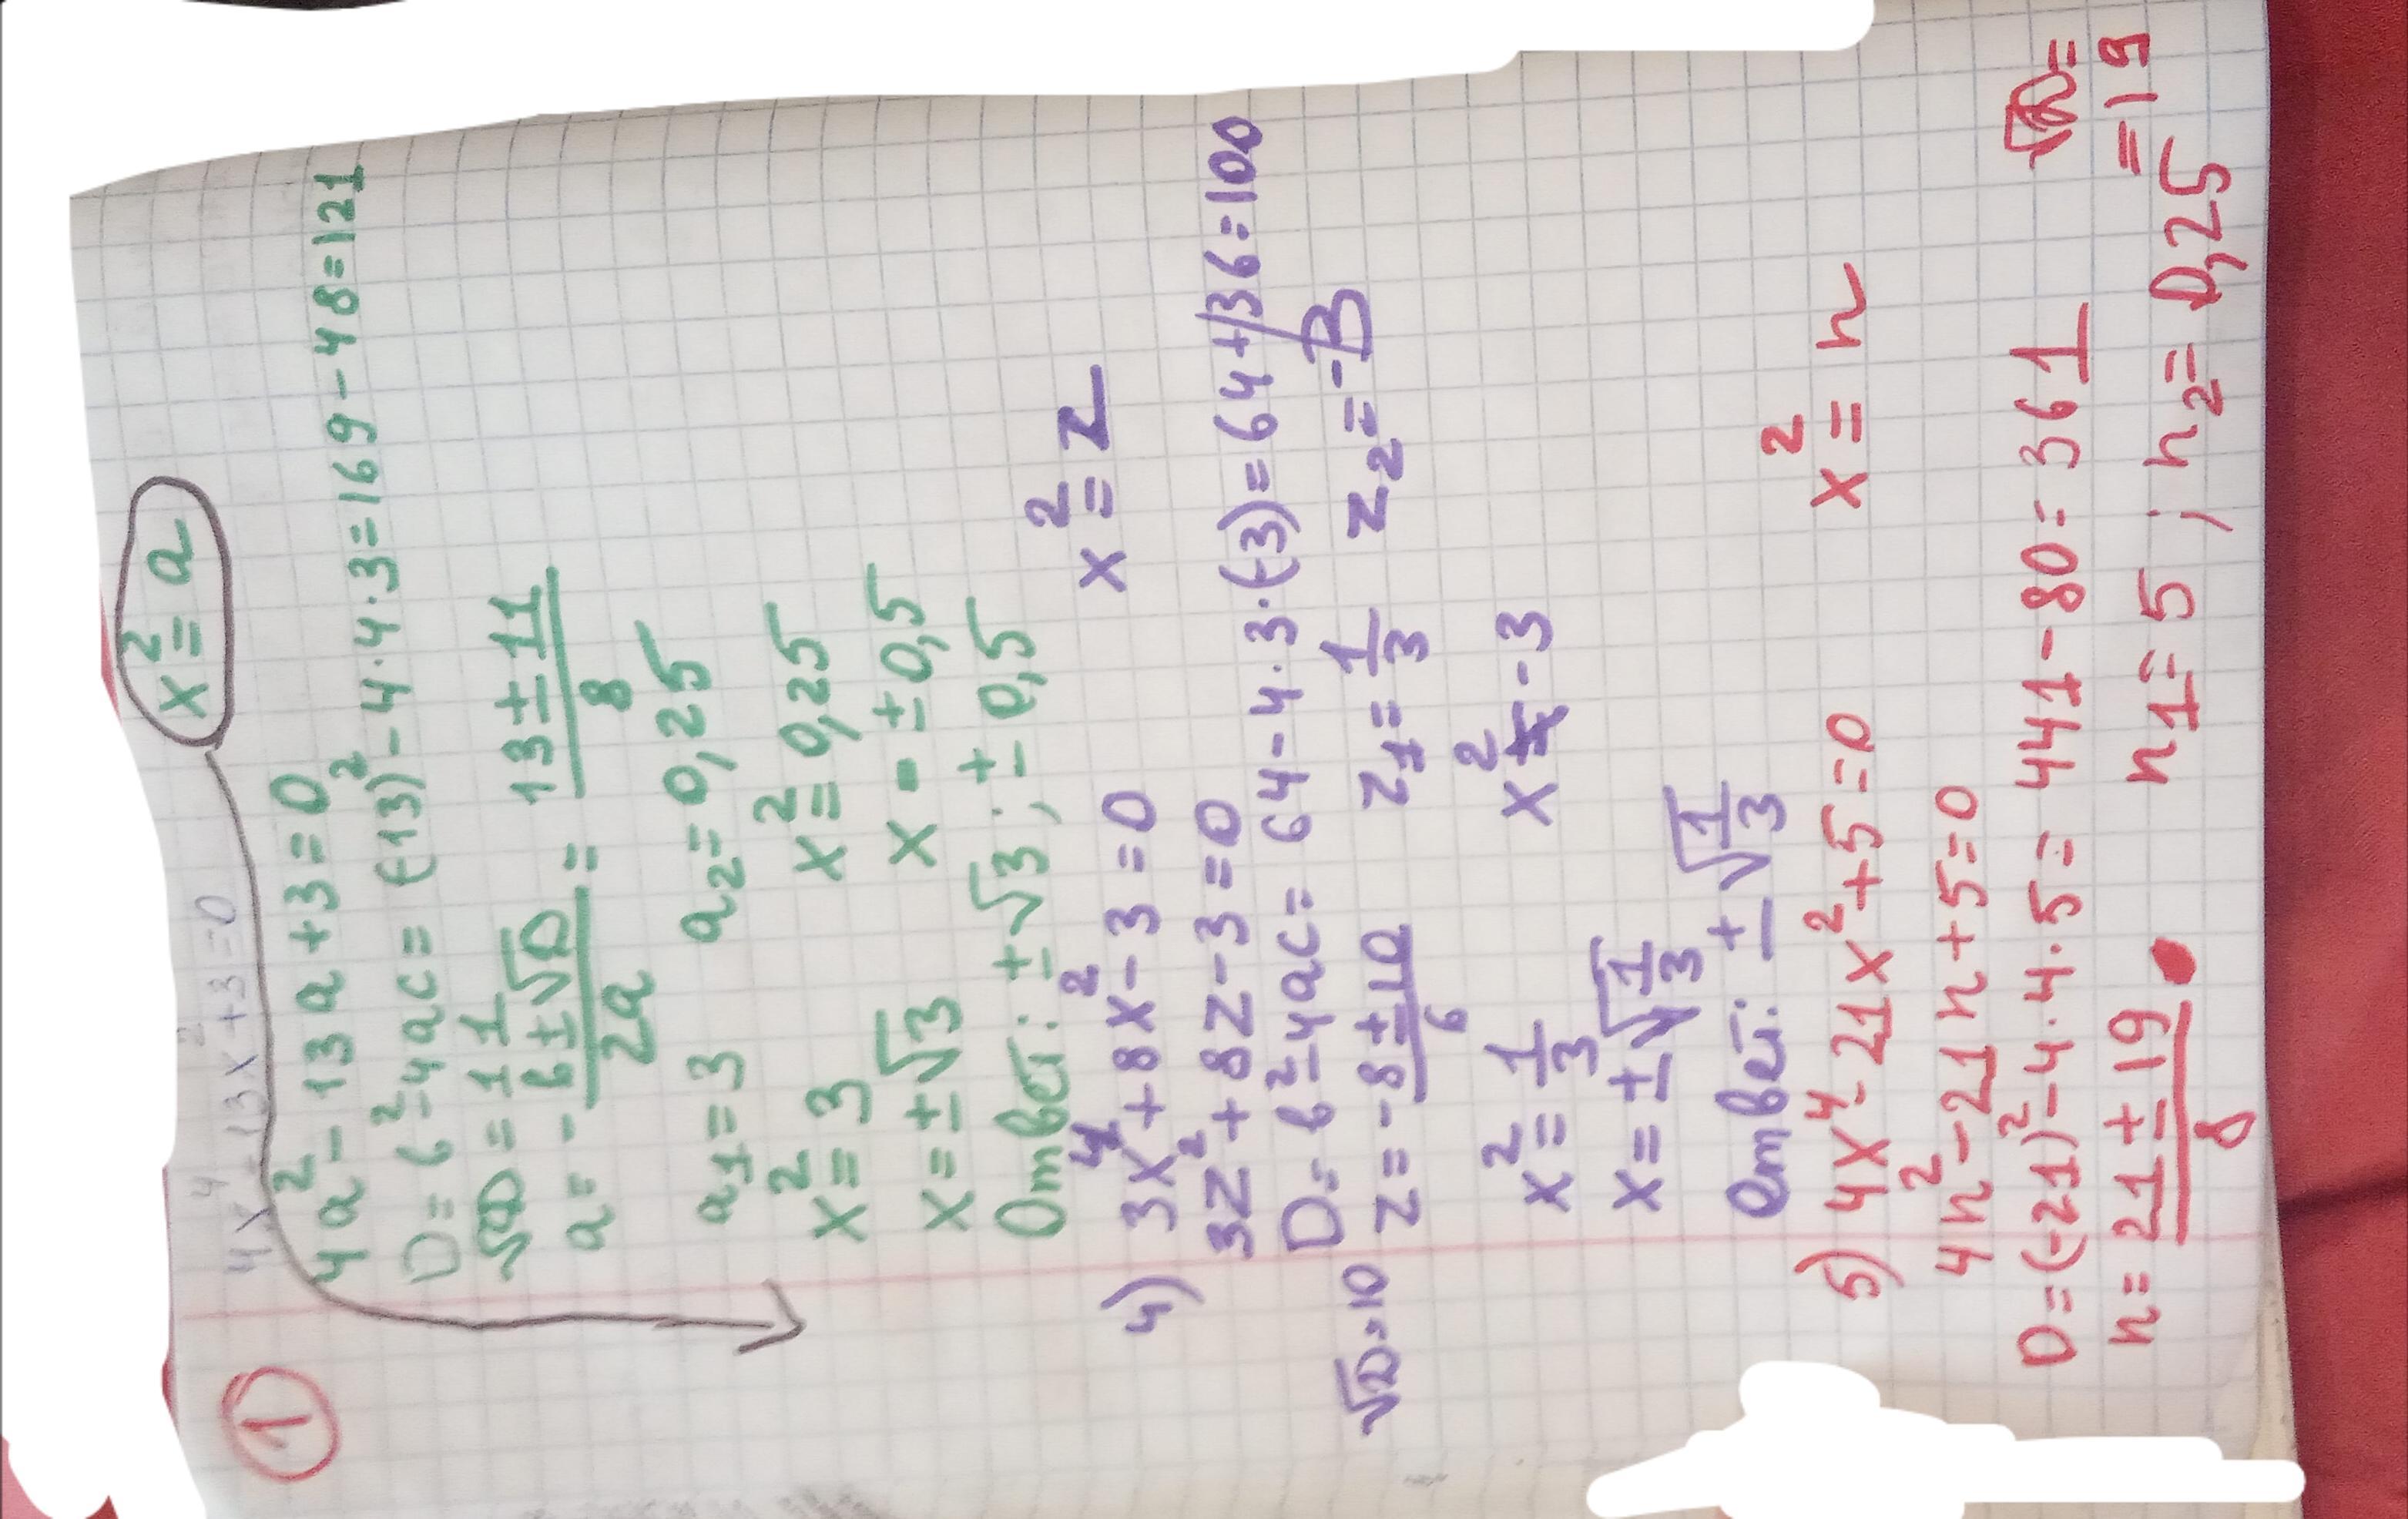 x²=a
① 4x⁴-13x²+3=0
4a²-13a+3=0
D=b²-4ac=(-13)²-4·4·3=169-48=121
√D=11
a=-b±√D/2a = 13±11/8
a₁=3 a₂=0,25
x²=3 x²=0,25
x=±√3 x=±0,5
Ответ: ±√3; ±0,5
4) 3x⁴+8x²-3=0 x²=z
3z²+8z-3=0
D=b²-4ac=64-4·3·(-3)=64+36=100
√D=10 z=-8±10/6 z₁=1/3 z₂=-3
x²=1/3 x²≠-3
x=±√1/3
Ответ: ±√1/3
5) 4x⁴-21x²+5=0 x²=n
4n²-21n+5=0
D=(-21)²-4·4·5=441-80=361 √D=
=19
n=21±19/8 n₁=5; n₂=0,25